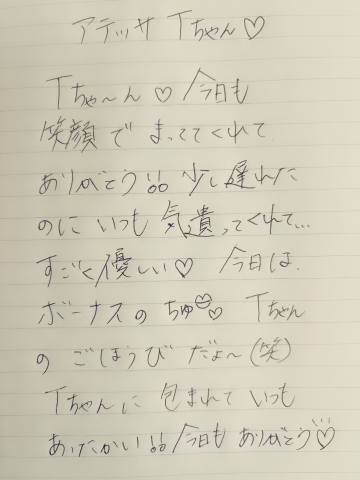 アテッサ Tちゃん♡
Tちゃ~ん♡ 今日も
笑顔で まっててくれて
ありがとう!! 少し遅れた
のに いつも 気遣ってくれて...
すごく優しい♡ 今日は
ボーナスの ちゅ♡ Tちゃん
の ごほうび だょ~(笑)
Tちゃんに 包まれて いつも
あったかい!! 今日も ありがとう♡